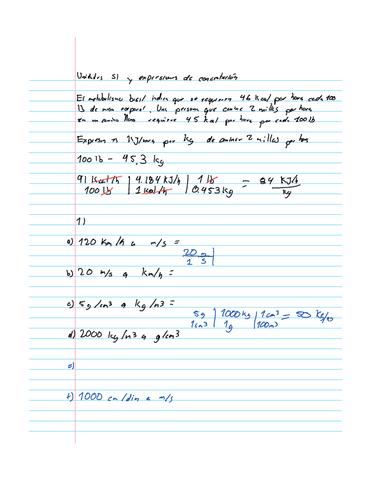 Unidades SI y expresiones de concentración
El metabolismo basal indica que se requieren 46 Kcal por hora cada 100
lb de masa corporal. Una persona que camine 2 millas por hora
en un camino llano requiere 45 kcal por hora por cada 100 lb
Expresar n KJ/hora por kg de caminar 2 millas por hora
100 lb - 45.3 kg
91 Kcal/h | 4.184 KJ/h | 1 lb = 8.4 KJ/h
100 lb | 1 Kcal/h | 0.453 kg kg
1)
a) 120 Km/h a m/s =
20 m
1 s
b) 20 m/s a km/h =
c) 5 g/cm3 a kg/m3 =
5g | 1000 kg | 1 cm3 = 50 kg/m3
1cm3 | 1g | 100m3
d) 2000 kg/m3 a g/cm3
e)
f) 1000 cm/dia a m/s